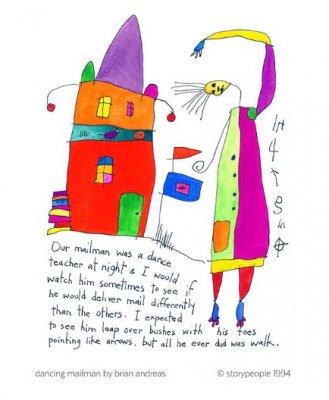 Our mailman was a dance
teacher at night & I would
watch him sometimes to see if
he would deliver mail differently
than the others. I expected
to see him leap over bushes with his toes
pointing like arrows. but all he ever did was walk.
dancing mailman by brian andreas
© storypeople 1994